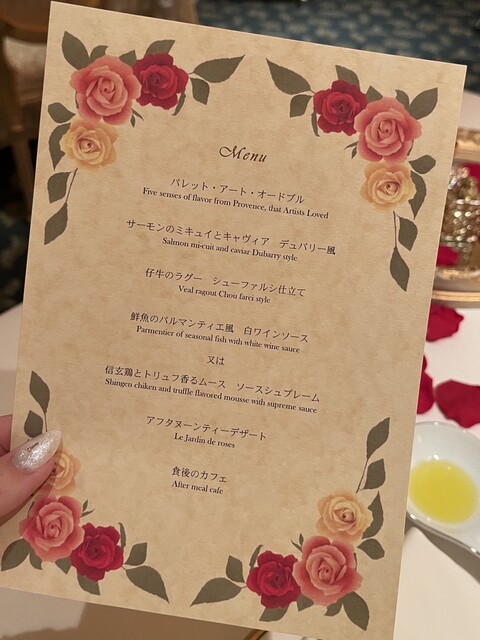 Menu
パレット・アート・オードブル
Five senses of flavor from Provence, that Artists Loved
サーモンのミキュイとキャヴィア　デュバリー風
Salmon mi-cuit and caviar Dubarry style
仔牛のラグー　シューファルシ仕立て
Veal ragout Chou farci style
鮮魚のパルマンティエ風　白ワインソース
Parmentier of seasonal fish with white wine sauce
又は
信玄鶏とトリュフ香るムース　ソースシュプレーム
Shingen chiken and truffle flavored mousse with supreme sauce
アフタヌーンティーデザート
Le Jardin de roses
食後のカフェ
After meal cafe